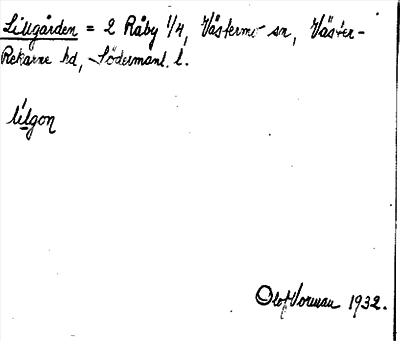 Lillgården = 2 Råby 1/4, Västermo sn, Väster-
Rekarne hd, Södermanl. l.
lílgon
Olof Vorman 1932.